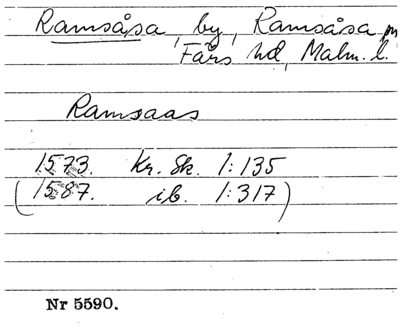 Ramsåsa, by, Ramsåsa
Färs hd, Malm. l.
Ramsaas
1573. Kr. Sk. 1:135
(1587. ib. 1:317)
Nr 5590.